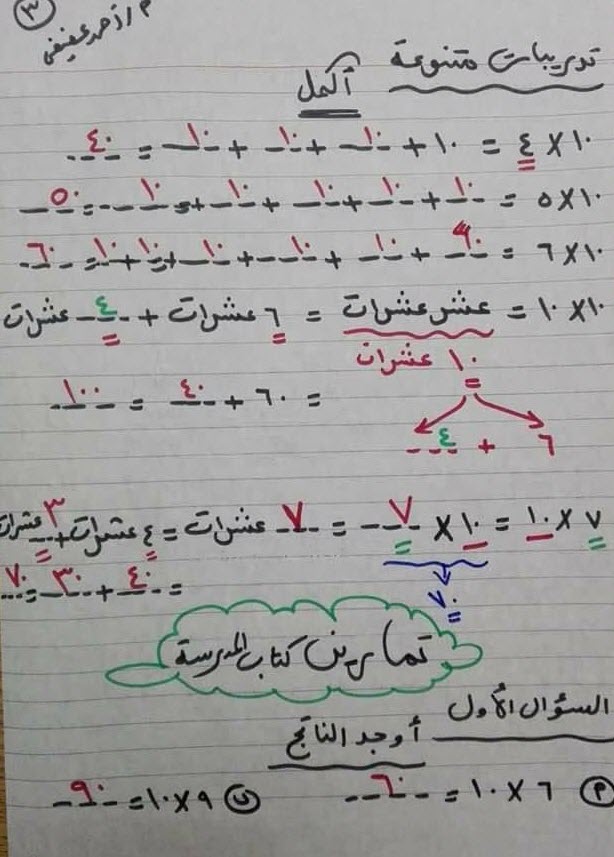 ٣
م / أحمد عفيفي
تدريبات متنوعة
أكمل
١٠ × ٤ = ١٠ + ١٠ + ١٠ + ١٠ = ٤٠
١٠ × ٥ = ١٠ + ١٠ + ١٠ + ١٠ + ١٠ = ٥٠
١٠ × ٦ = ١٠ + ١٠ + ١٠ + ١٠ + ١٠ + ١٠ = ٦٠
١٠ × ١٠ = عشر عشرات = ٦ عشرات + ٤ عشرات
١٠ عشرات
= ٦٠ + ٤٠ = ١٠٠
٦ + ٤
٧ × ١٠ = ١٠ × ٧ = ٧ عشرات = ٤ عشرات + ٣ عشرات
٧٠
= ٤٠ + ٣٠ = ٧٠
تمارين كتاب المدرسة
السؤال الأول
أوجد الناتج
٦ × ١٠ = ٦٠
٩ × ١٠ = ٩٠